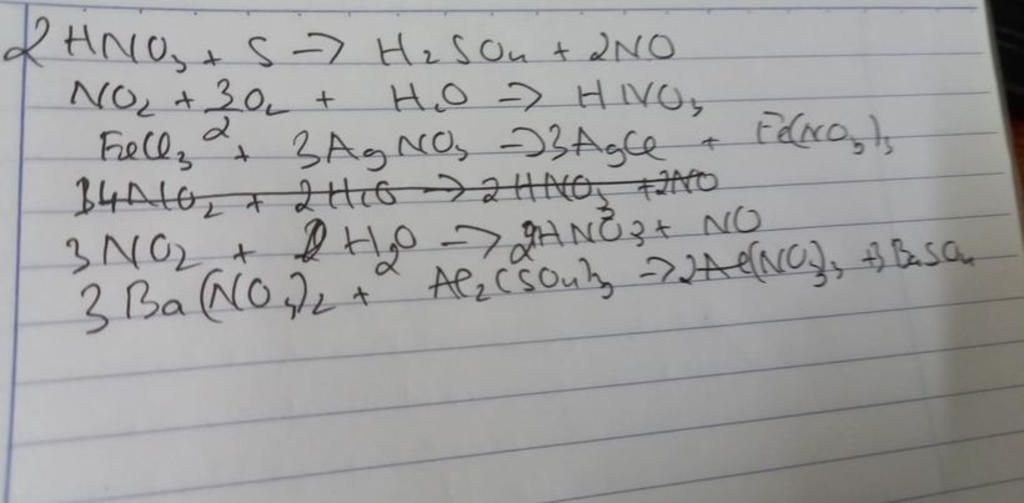 2HNO3 + S → H2SO4 + 2NO
NO2 + 3/2 O2 + H2O → HNO3
FeCl3 + 3AgNO3 → 3AgCl + Fe(NO3)3
34NO2 + 2H2O → 2HNO3 + 2NO
3NO2 + H2O → 2HNO3 + NO
3Ba(NO3)2 + Al2(SO4)3 → 2Al(NO3)3 + 3BaSO4